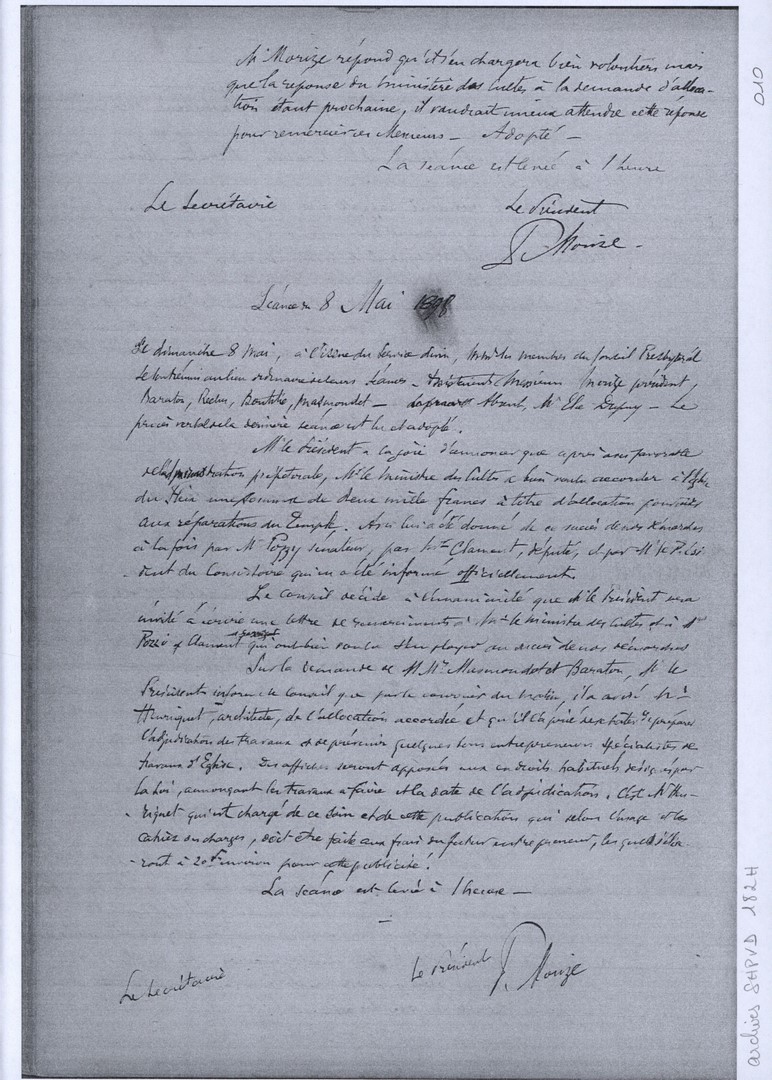 Mr Morize répond qu'il s'en chargera bien volontiers mais
que la réponse du ministère des Cultes à la demande d'alloca-
tion étant prochaine, il vaudrait mieux attendre cette réponse
pour remercier ces Messieurs — Adopté —
La séance est levée à 1 heure
Le Secrétaire
Le Président
P. Morize
Séance du 8 Mai 1898
Le dimanche 8 Mai, à l'issue du Service divin, les membres du Conseil Presbytéral
se sont réunis au lieu ordinaire de leurs Séances — Messieurs Morize président,
Baraton, Reclus, Masmondet — Absent, Mr Elie Dupuy — Le
procès verbal de la dernière séance est lu et adopté.
Mr le Président a la joie d'annoncer que après avis favorable
de l'administration préfectorale, Mr le Ministre des Cultes a bien voulu accorder à l'église
du Fleix une somme de deux mille francs à titre d'allocation pour
aux réparations du Temple. Avis lui a été donné de ce succès de nos démarches
à la fois par Mr Pozzy senateur, par Mr Clament, député, et par Mr le Prési-
dent du Consistoire qui en a été informé officiellement.
Le Conseil décide à l'unanimité que Mr le Président sera
invité à écrire une lettre de remerciements à Mr le Ministre des Cultes et à Mrs
Pozzi & Clament qui ont bien voulu s'employer au succès de nos démarches
Sur la demande de M. Mrs Masmondet et Baraton, Mr le
Président informe le Conseil que par le courrier du matin, il a avisé Mr
Henriquet, architecte, de l'allocation accordée et qu'il l'a prié de préparer
l'adjudication des travaux et de prévenir quelques bons entrepreneurs spécialistes de
travaux d'Eglise. Des affiches seront apposées aux endroits habituels désignés par
la Loi, annonçant les travaux à faire et la date de l'adjudication. C'est Mr Hen-
riquet qui est chargé de ce soin et de cette publication qui, selon l'usage et les
cahiers des charges, doit être faite aux frais du futur entrepreneur, lesquels s'élève-
ront à 20f environ pour cette publicité.
La séance est levée à 1 heure —
Le Secrétaire
Le Président
P. Morize
010
archives SHPVD 182H